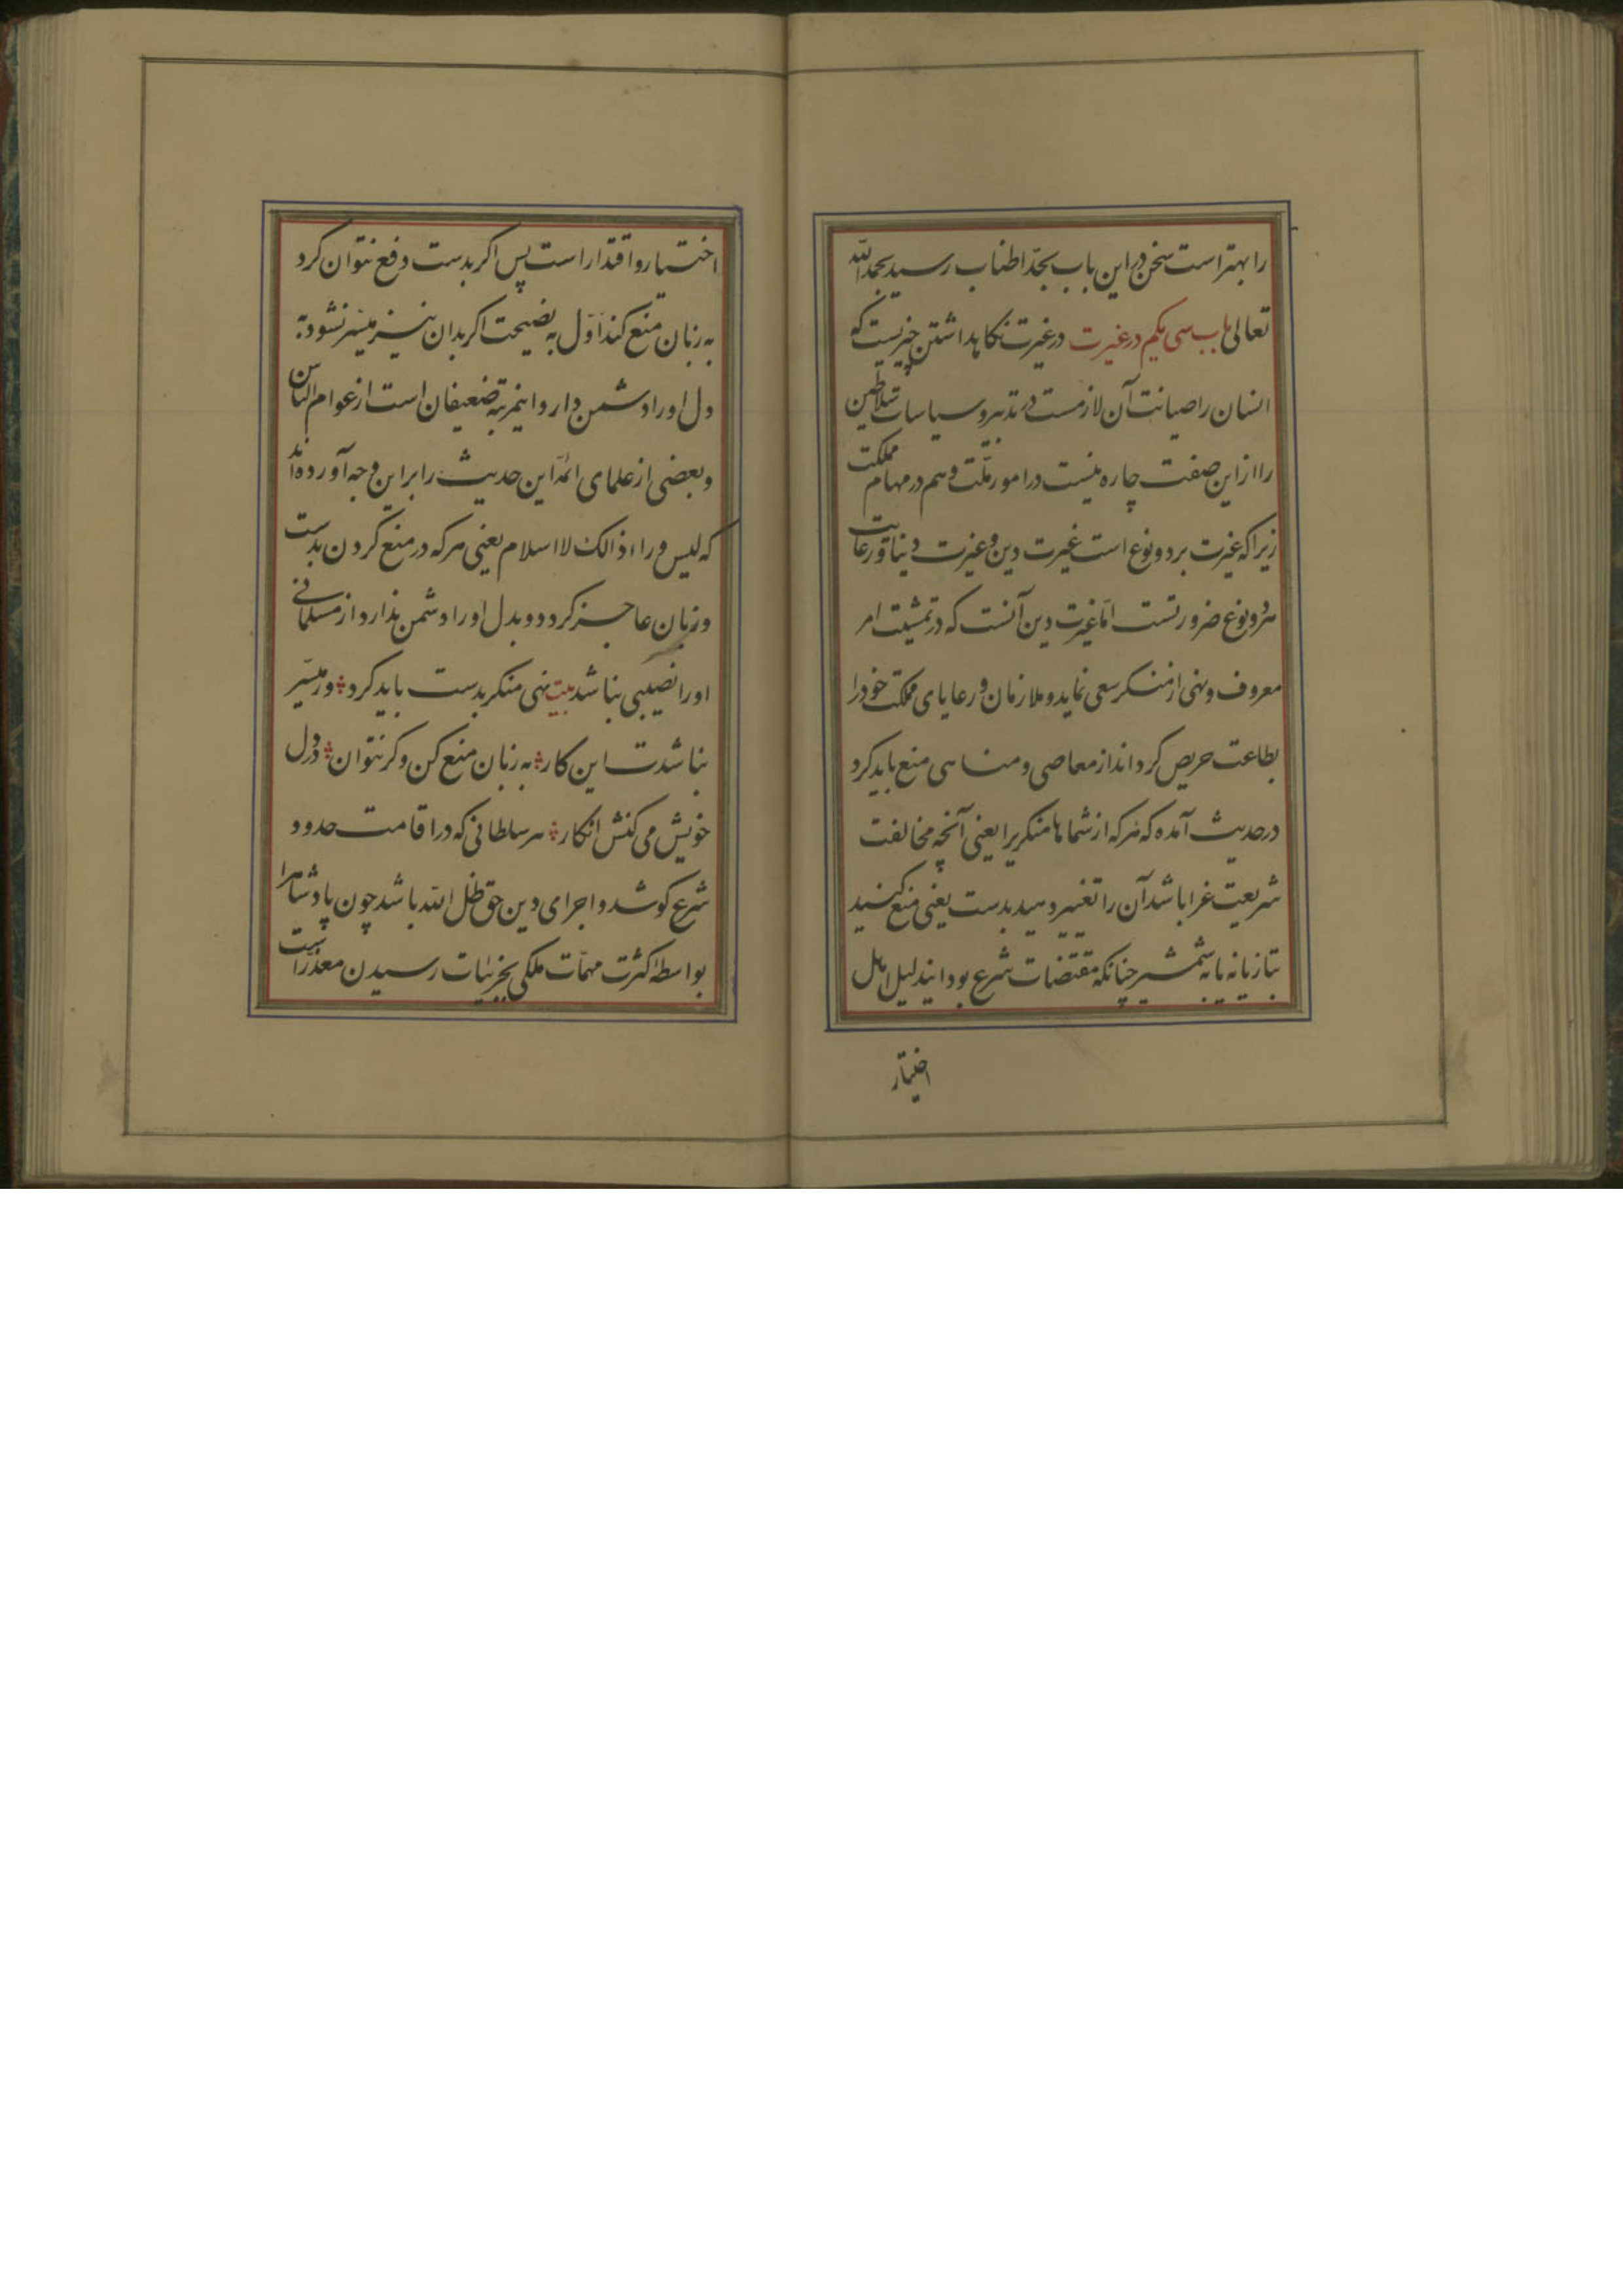 را بهتر است سخن در این باب بحد اطناب رسید بحمدالله
تعالی باب سی یکم در غیرت در غیرت نگاهداشتن چیزیست که
انسان را صیانت آن لازمست در تدبیر و سیاسات سلاطین
را از این صفت چاره نیست در امور ملت و هم در مهام مملکت
زیرا که غیرت بر دو نوع است غیرت دین و غیرت دنیا و رعایت
هر دو نوع ضرورتست اما غیرت دین آنست که در تمشیت امر
معروف و نهی از منکر سعی نماید و ملازمان و رعایای مملکت خود را
بطاعت حریص گرداند از معاصی و مناهی منع باید کرد
در حدیث آمده که هر که از شماها منکریرا یعنی آنچه مخالفت
شریعت غرا باشد آن را تغییر دهید بدست یعنی منع کنید
بتازیانه یا به شمشیر چنانکه مقتضات شرع بود ایندلیل اهل
اختیار
اختیار و اقتدار است پس اگر بدست دفع نتوان کرد
به زبان منع کند اول به نصیحت اگر بدان نیز میسر نشود به
دل او را دشمن دارد و اینمرتبه ضعیفان است از عوام الناس
و بعضی از علمای ائمه این حدیث را بر این وجه آورده‌اند
که لیس وراء ذالک لااسلام یعنی هر که در منع کردن بدست
و زبان عاجز گردد و بدل او را دشمن ندارد از مسلمانی
او را نصیبی نباشد بیت نهی منکر بدست باید کرد ور میسر
نباشدت این کار به زبان منع کن وگر نتوان در دل
خویش می کنش انکار هر سلطانی که در اقامت حدود
شرع کوشد و اجرای دین حق ظل الله باشد چون پادشاه را
بواسطه کثرت مهمات ملکی بجزئیات رسیدن معذر است